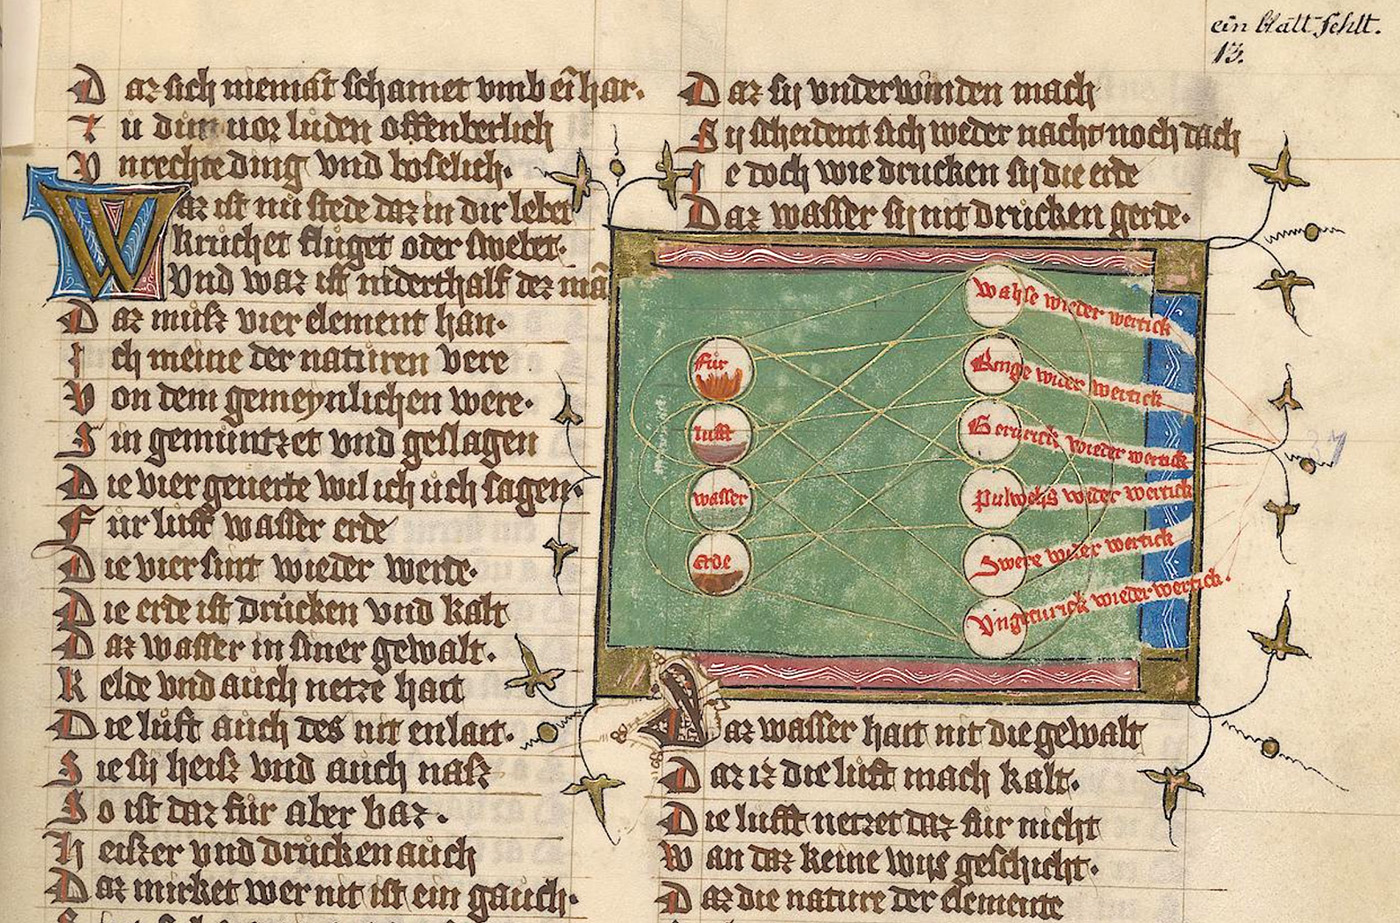 ein blatt fehlt.
13.
Daz sich niemāt schamet vmb ein har.
Tu dim uor luden offenberlich
Vnrechte ding vnd boselich.
Waz ist nu stede daz in dir lebet
kruchet fluget oder swebet.
Vnd waz ist niderthalf dez mā
Daz muͦsz vier element han.
Ich meine der naturen vere
Von dem gemeynlichen were.
Sin gemuntzet vnd geslagen
Die vier geuerte wil ich uch sagen.
Fur luft wasser erde
Die vier sint wieder werde.
Die erde ist drucken vnd kalt
Daz wasser in siner gewalt.
Kelde vnd auch netze hait
Die luft auch des nit enlait.
Sie sij heisz vnd auch nasz
So ist daz fur aber baz.
Heiszer vnd drucken auch
Daz mirket wer nit ist ein gauch.
Daz sij vnderwinden mach
Sij scheident sich weder nacht noch dach
Ie doch wie drucken sij die erde
Daz wasser sij nit drucken gerde.
Fur
lufft
wasser
erde
Wahse wieder wertick
Ringe wider wertick
Gerurick wieder wertick
Pulwelis wider wertick
Swere wider wertick
Vngerurick wieder wertick.
Daz wasser hait nit die gewalt
Daz iz die luft mach kalt.
Die lufft netzet daz fur nicht
Wan daz keine wijs geschicht.
Daz die nature der elemente